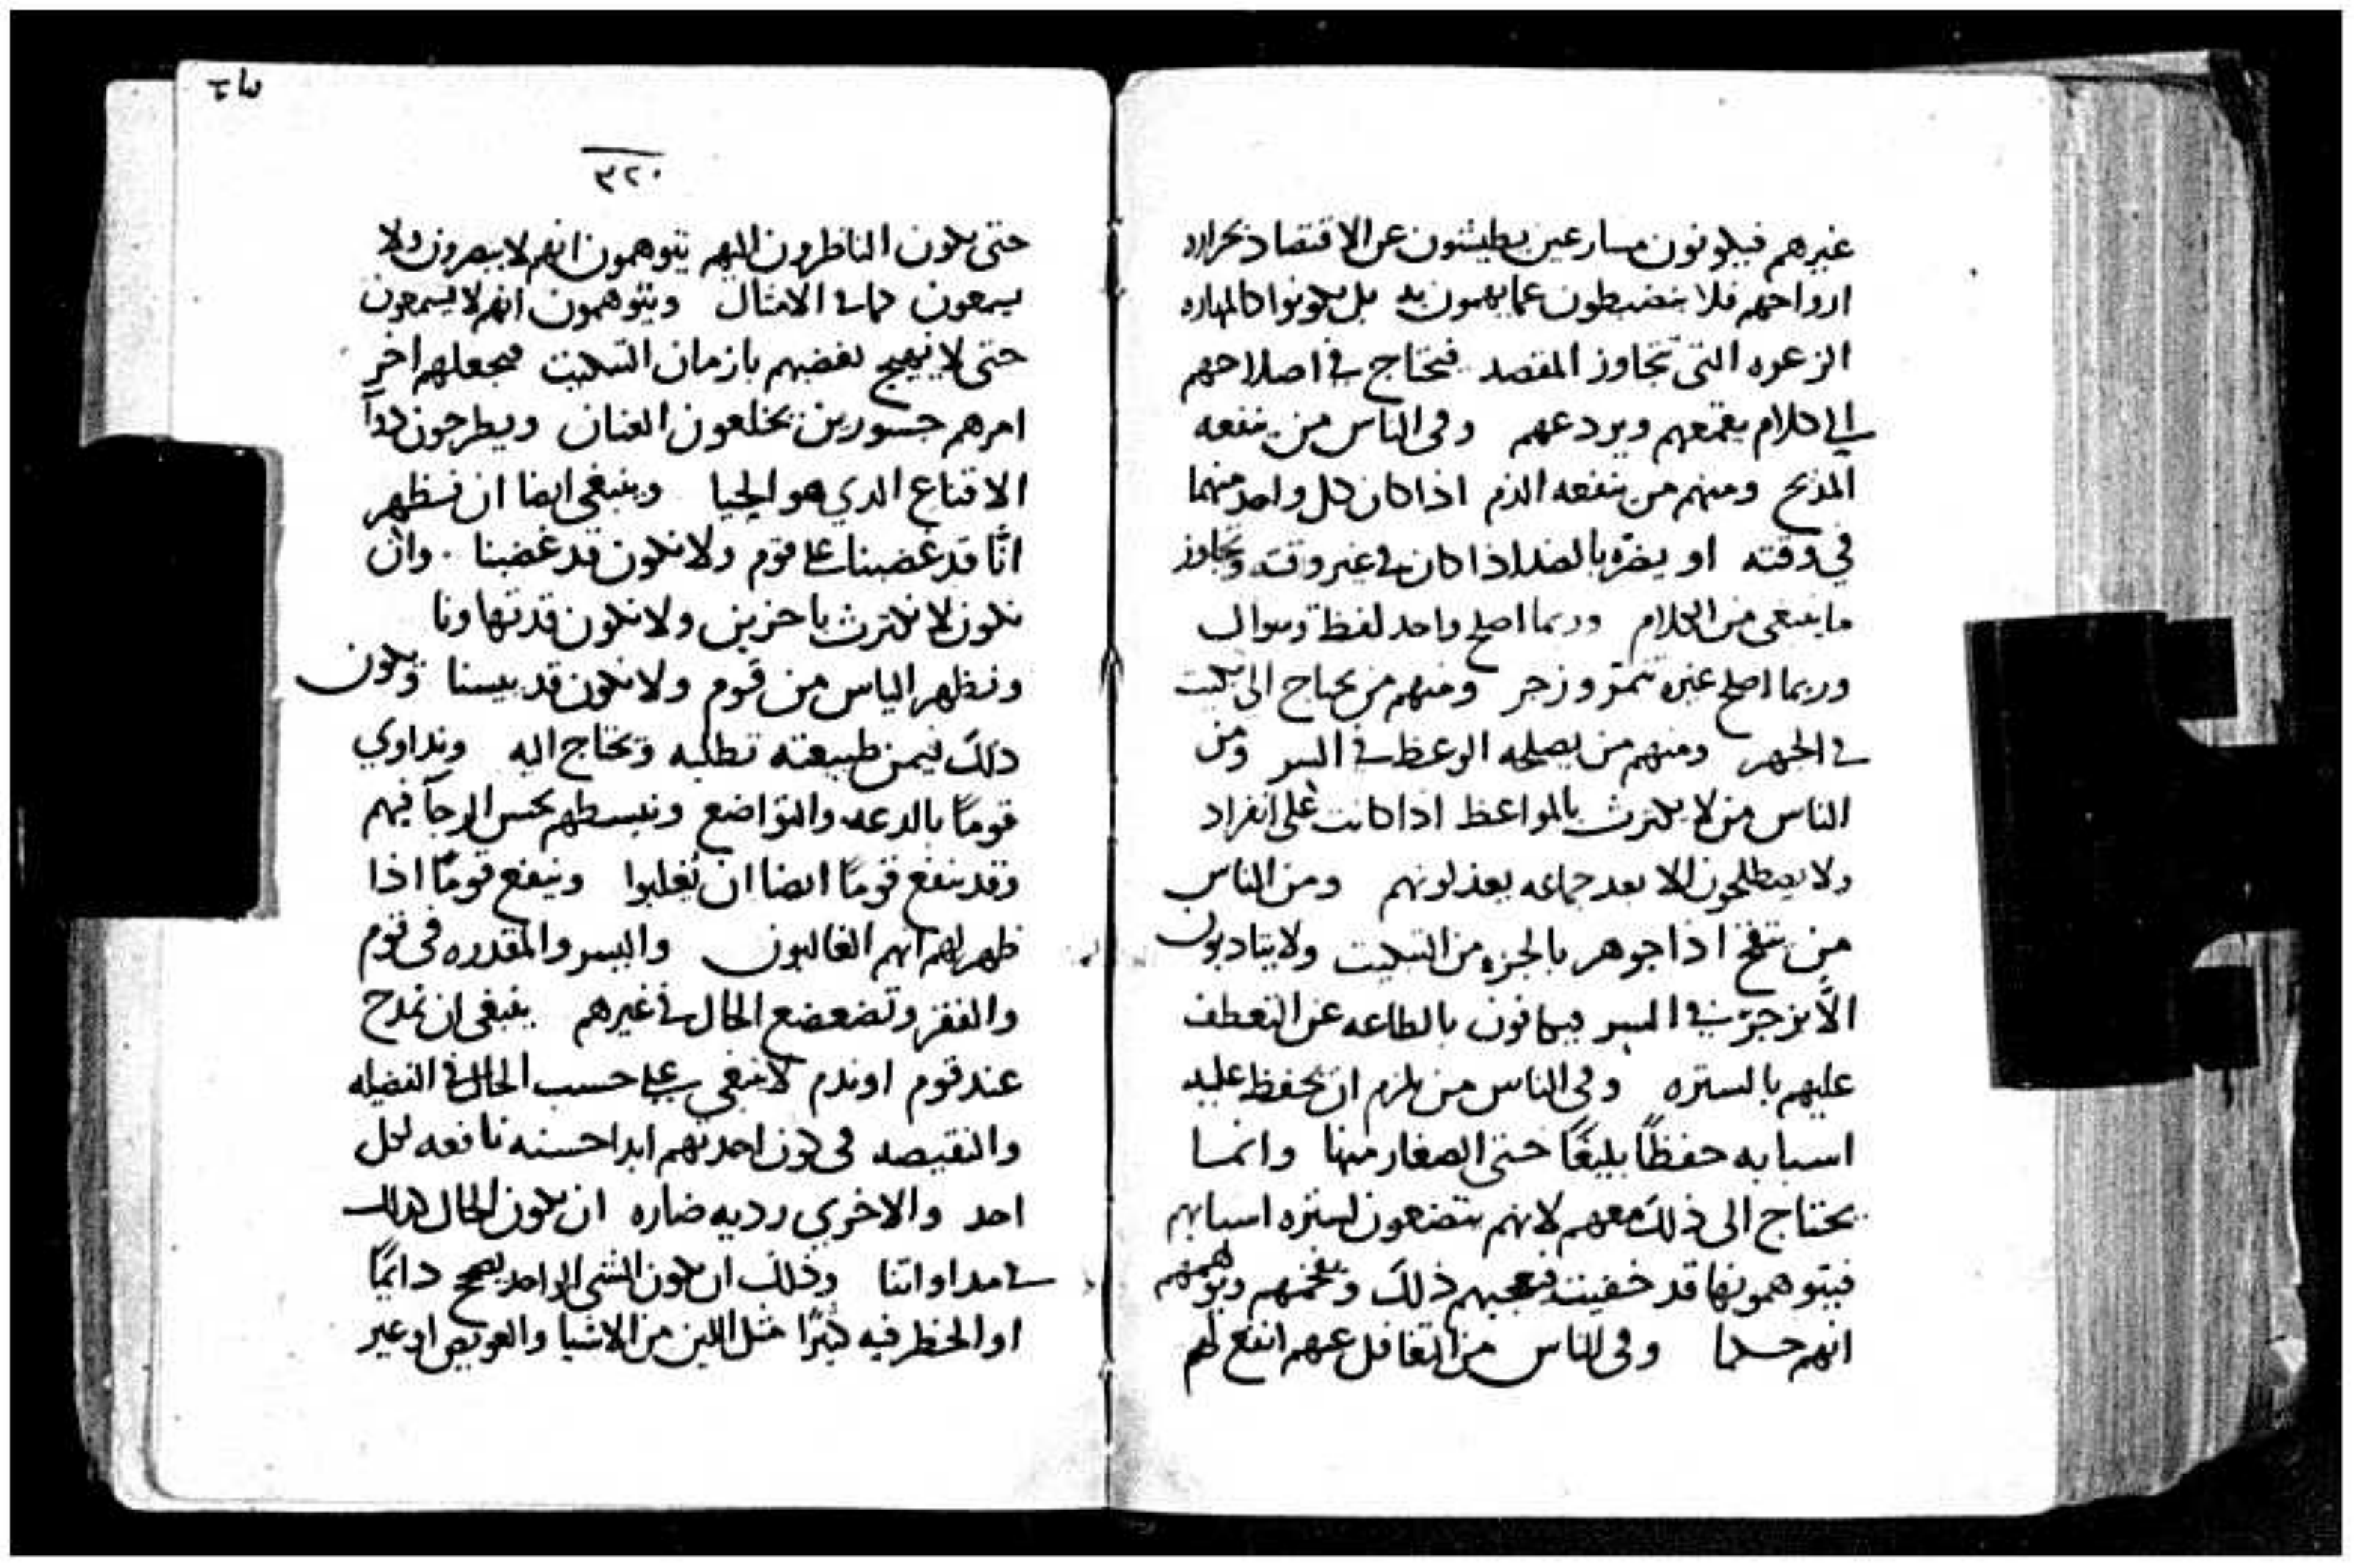 غيرهم فيكونون مسارعين يطيشون عن الاقتصاد بحراره
ارواحهم فلا ينضبطون عما يهمون به بل يكونوا كالمهاره
الزعره التى تجاوز المقصد فتحتاج في اصلاحهم
الي كلام يقمعهم ويردعهم وفى الناس من ينفعه
المديح ومنهم من ينفعه الذم اذا كان كل واحد منهما
في وقته او يضره بالضد اذا كان في غير وقته وتجاوز
ما ينبغى من الكلام وربما اصلح واحد لفظ وسوال
وربما اصلح غيره وزجر ومنهم من يحتاج الى تبكيت
في الجهر ومنهم من يصلحه الوعظ في السر ومن
الناس من لا يكترث بالمواعظ اذا كانت على انفراد
ولا يصطلحون الا بعد جماعه يعذلونهم ومن الناس
من ينتفخ اذا جوهر بالجزء من التبكيت ولا يتادبون
الا بزجر في السر فيكافون بالطاعه عن التعطف
عليهم بالستره وفى الناس من يلزم ان يحفظ عليه
اسبابه حفظًا بليغًا حتى الصغار منها وانما
يحتاج الى ذلك معهم لانهم يتصنعون لستره اسبابهم
فيتوهمونها قد خفيت فيعجبهم ذلك ويفخمهم ويوهمهم
انهم حكما وفى الناس من التغافل عنهم انفع لهم
٣٢٠
حتى يكون الناظرون اليهم يتوهمون انهم لا يبصرون ولا
يسمعون كما في الامثال ويتوهمون انهم لا يسمعون
حتى لا نهيج بغضهم بازمان التبكيت فيجعلهم اخر
امرهم جسورين يخلعون العنان ويطرحون دوآ
الاقناع الدي هو الحيا وينبغى ايضا ان نظهر
انّا قد غضبنا على قوم ولا نكون قد غضبنا وان
نكون لا نكترث باخرين ولا نكون قد تهاونا
ونظهر الياس من قوم ولا نكون قد يسنا ويكون
ذلك فيمن طبيعته تطلبه وتحتاج اليه ونداوي
قومًا بالدعه والتواضع ونبسطهم بحسن الرجآ فيهم
وقد ينفع قومًا ايضا ان يُغلبوا وينفع قومًا اذا
ظهر لهم انهم الغالبون واليسر والمقدره فى قوم
والفقر وتضعضع الحال في غيرهم ينبغى ان تمدح
عند قوم او تذم لا ينبغي على حسب الحال في الفضيله
والنقيصه فى كون احدتهم ابدا حسنه نافعه لكل
احد والاخري رديه ضاره ان يكون الحال كذلك
في مداواتنا وذلك ان يكون الشى الواحد يصح دايمًا
او الخطر فيه كثيرًا مثل اللين من الاشيا والعويص او غير